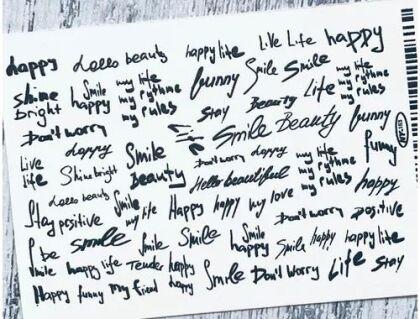 happy Hello beauty happy life Live Life happy
shine bright Smile happy my life my rythme my rules funny Smile Smile my life my rythme my rules
Stay Beauty Life funny
Don't worry Smile Beauty
Live life happy Smile Don't worry happy my life my rythme my rules funny
Shine bright Beauty Hello beautiful happy
Hello beauty Smile
Stay positive my life Happy happy my love Don't worry positive
be smile Smile Smile Smile happy Smile happy happy life
Smile happy life Tender happy Smile Don't worry Life stay
Happy funny my friend happy